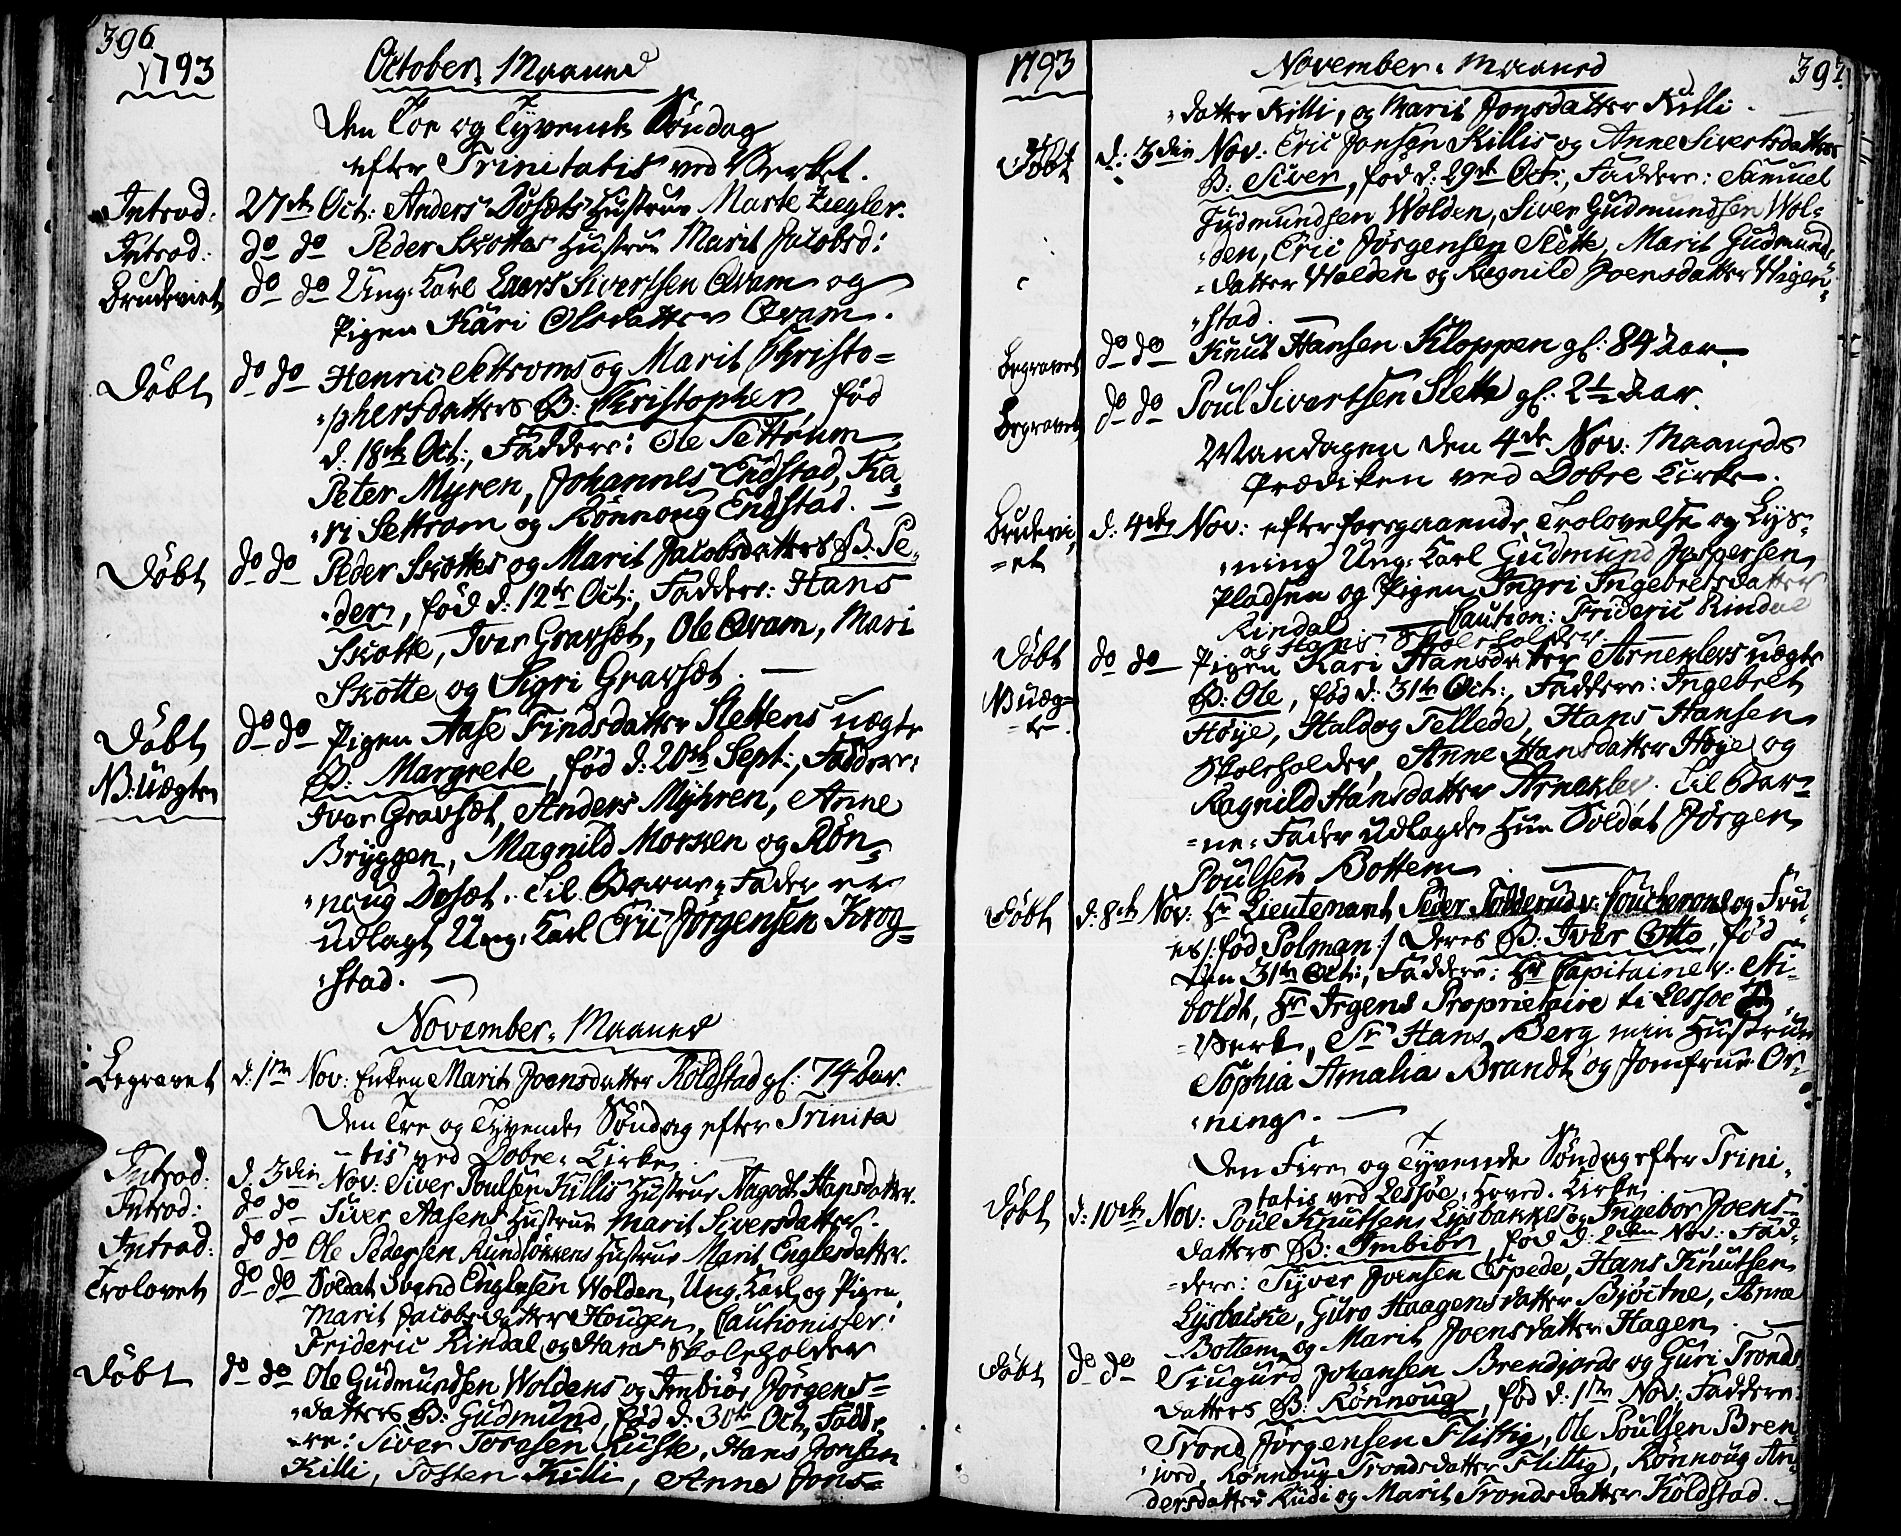 396
1793
October Maaned
Den Toe og Tyvende Søndag
efter Trinitatis ved Verket.
Introd: 27de Oct: Anders Dosæts Hustrue Marte Ziegler.
Introd: do do Peder Skottes Hustrue Marit Jacobsd:
Brudeviet do do Ung-Karl Laers Sivertsen Qvam og
Pigen Kari Olsdatter Qvam.
Døbt do do Henric Settroms og Marit Christo=
=phersdatters B: Christopher, fød
d: 18de Oct:, Faddere: Ole Settrum
Peter Myren, Johannes Endstad, Ka=
=ri Settrom og Rønnoug Endstad. —
Døbt do do Peder Skottes og Marit Jacobsdatters B: Pe=
=der, fød d: 12te Oct:, Faddere: Hans
Skotte, Iver Gravsæt, Ole Qvam, Mari
Skotte og Sigri Gravsæt. —
Døbt do do Pigen Aase Findsdatter Slettens uægte
NB: Uægte B: Margrete, fød d: 20de Sept:, Faddere:
Iver Gravsæt, Anders Myhren, Anne
Bryggen, Magnild Morken og Røn=
=noug Dosæt. Til Barne-Fader er
udlagt Ung-Karl Eric Jørgensen Krog=
=stad. —
November-Maaned
Begravet d: 1te Nov: Enken Marit Joensdatter Koldstad gl: 74 Aar.
Den Tre og Tyvende Søndag efter Trinita
=tis ved Dovre-Kirke.
Introd: d: 3die Nov: Siver Poulsen Killis Hustrue Aagodt Hansdatter.
Introd: do do Siver Aasens Hustrue Marit Siversdatter.
Introd: do do Ole Pedersen Rundsøkkens Hustrue Marit Englesdatter.
Trolovet do do Soldat Svend Englesen Wolden, Ung-Karl, og Pigen
Marit Jacobsdatter Hougen, Cautionister:
Frideric Rindal og Hans Skoleholder
Døbt do do Ole Gudmundsen Woldens og Imbiør Jørgens=
=datters B: Gudmund, fød d: 30te Oct, Fadde
=re: Siver Torgsen Kuste, Hans Jonsen
Killi, Tosten Killi, Anne Jons=
1793
November-Maaned
397.
=datter Killi, og Marit Jonsdatter Killi.
Døbt d: 3die Nov: Eric Jonsen Killis og Anne Sivertsdatters
B: Siver, fød d: 29de Oct:, Faddere: Samuel
Gudmundsen Wolden, Siver Gudmundsen Wol=
=den, Eric Jørgensen Slette, Marit Gudmunds=
=datter Wolden og Ragnild Joensdatter Wigen=
=stad. —
Begravet do do Knut Hansen Kloppen gl: 84 Aar.
Begravet do do Poul Sivertsen Slette gl: 2½ Aar.
Mandagen den 4de Nov: Maaneds
Prædiken ved Dovre Kirke.
Brudevi= d: 4de Nov: efter foregaaende Trolovelse og Lys=
=et =ning Ung-Karl Gudmund Jespersen
Pladsen og Pigen Ingri Ingebretsdatter
Rindal — Caution: Frideric Rindal
og Hans Skoleholder
Døbt do do Pigen Kari Hansdatter Arneklevs uægte
NB uæg= B: Ole, fød d: 31te Oct:, Faddere: Ingebret
=te. Høye, Haldog Tellede, Hans Hansen
Skoleholder, Anne Hansdatter Høye og
Ragnild Hansdatter Arneklev. Til Bar=
=ne-Fader udlagde Hun Soldat Jørgen
Poulsen Bottem. —
Døbt d: 8de Nov: Hr Lieutenant Peder Tolderud v: Couckerons og Fru=
es /: fød Polman :/ Deres B: Iver Otto, fød
den 31te Oct:, Faddere: Hr Capitaine v: Ni=
boldt, Hr Irgens Proprietaire til Lessøe
=Verk, Sr Hans Berg, min Hustrue
Sophia Amalia Brandt og Jomfrue Or=
=ning. —
Den Fire og Tyvende Søndag efter Trini=
tatis ved Lessøe-Hoved-Kirke
Døbt d: 10de Nov: Poul Knutsens Lysbakkes og Ingebor Joens=
datters B: Imbiør, fød d: 2den Nov: Fad=
=dere: Syver Joensen Espede, Hans Knutsen
Lysbakke, Guro Haagensdatter Biøctne, Anne
Bottem og Marit Joensdatter Hagen. —
Døbt do do Siugurd Johansen Brendjords og Guri Tronds
datters B: Rønnoug, fød d: 1te Nov:, Faddere:
Trond Jørgensen Flittig, Ole Poulsen Bren=
=jord, Rønnoug Trondsdatter Flittig, Rønnoug An=
dersdatter Rudi og Marit Trondsdatter Koldstad. —